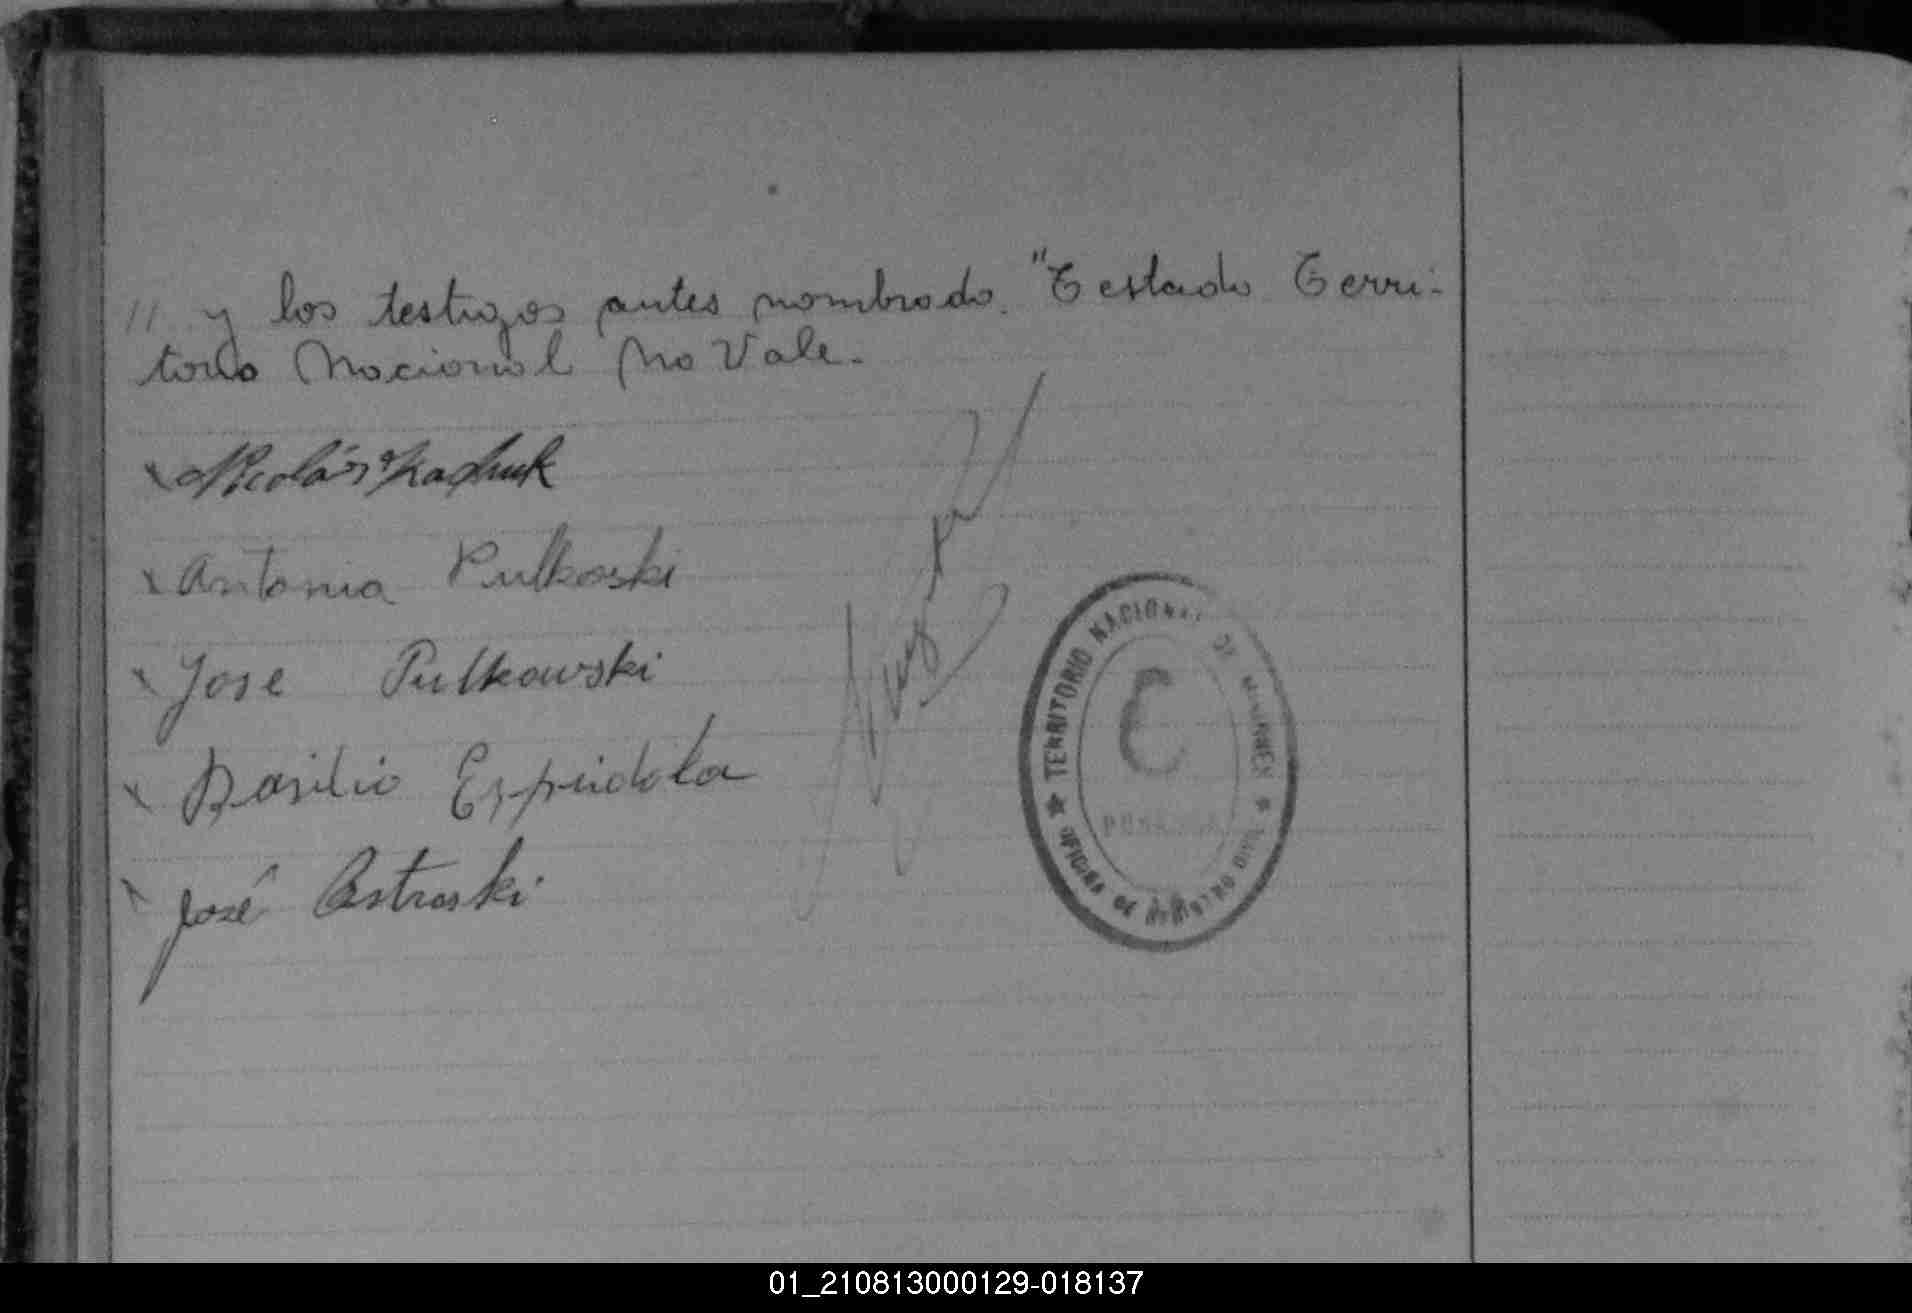 // y los testigos antes nombrado. "Testado Terri-
torio Nacional No Vale.-
Nicolás Kachuk
Antonia Pulkoski
Jose Pulkowski
Basilio Espindola
José Ostroski
TERRITORIO NACIONAL DE MISIONES
OFICINA DE REGISTRO CIVIL
01_210813000129-018137